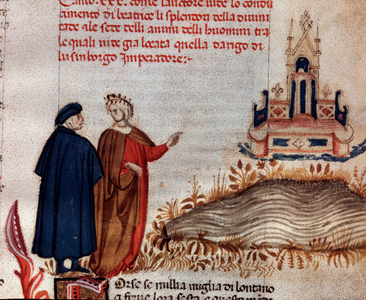 Canto .XXX. come lautore vide lo condu
cimento di beatrice li splendori della divini
tade ⁊ le sete delli animi delli huomini tra
le quali vide gia locata quella darigo di
lusimborgo Imperatore:
Forse se millia miglia di lontano